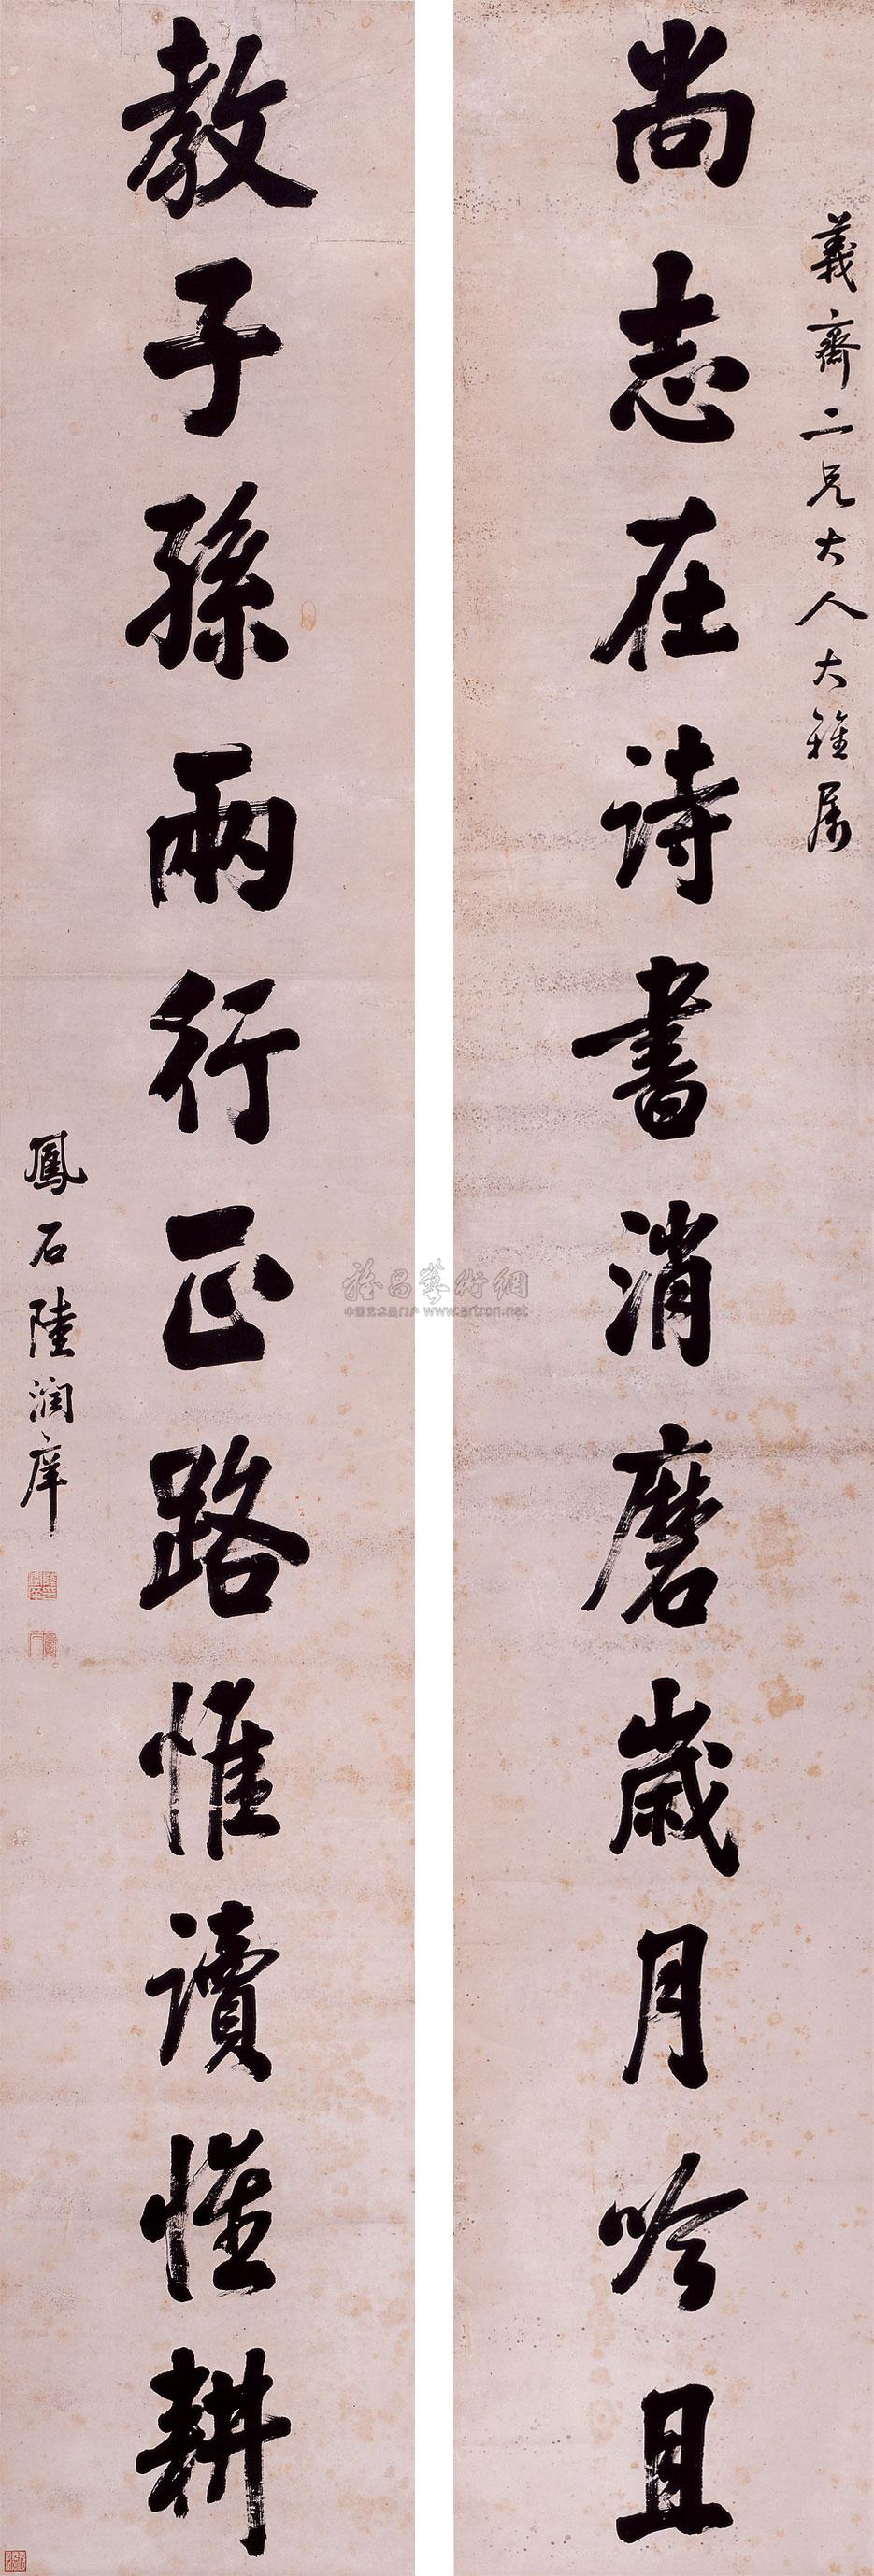 義齋二兄大人大雅属
尚志在詩書消磨歲月吟且
教子孫兩行正路惟讀惟耕
鳳石陸潤庠
雅昌藝術網
中国艺术品门户 www.artron.net